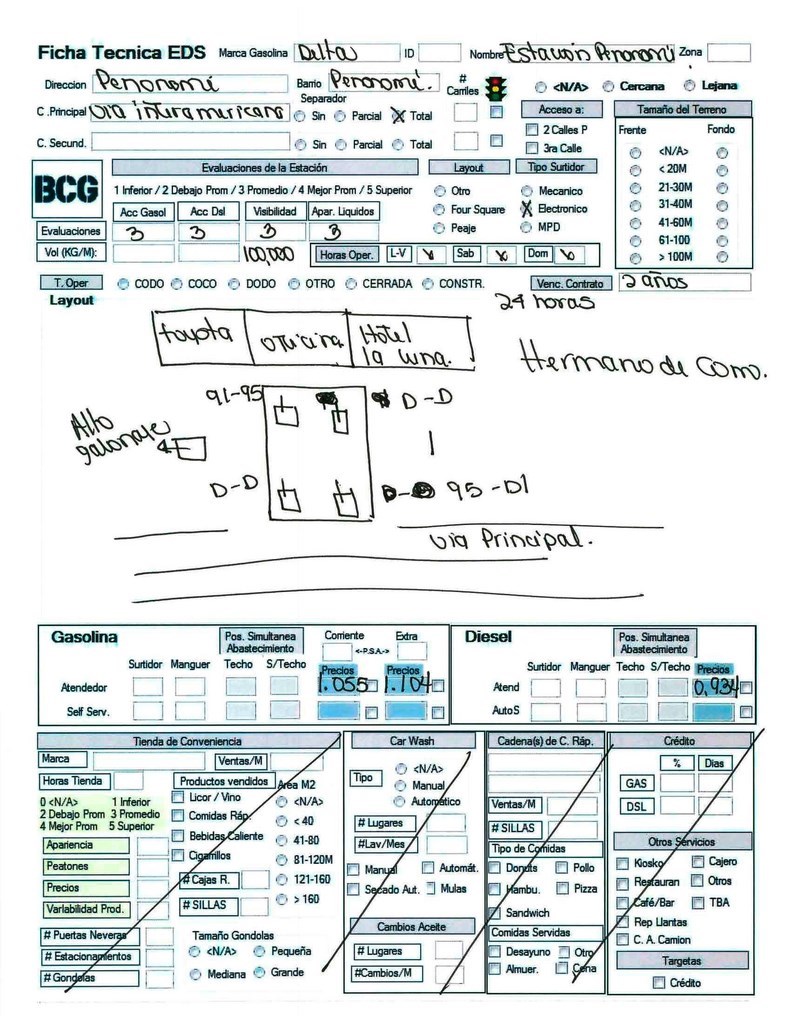 Ficha Tecnica EDS Marca Gasolina Delta ID Nombre Estacion Penonomí Zona
Direccion Penonomí Barrio Penonomí. # Carriles <N/A> Cercana Lejana
C .Principal Via interamericana Separador Sin Parcial Total Acceso a: Tamaño del Terreno
C. Secund. Sin Parcial Total 2 Calles P 3ra Calle Frente Fondo
BCG Evaluaciones de la Estación Layout Tipo Surtidor <N/A>
1 Inferior / 2 Debajo Prom / 3 Promedio / 4 Mejor Prom / 5 Superior Otro Mecanico < 20M
Acc Gasol Acc Dsl Visibilidad Apar. Liquidos Four Square Electronico 21-30M
31-40M
Evaluaciones 3 3 3 3 Peaje MPD 41-60M
61-100
Vol (KG/M): 100,000 Horas Oper. L-V Sab Dom > 100M
T. Oper CODO COCO DODO OTRO CERRADA CONSTR. Venc. Contrato 2 años
Layout 24 horas
toyota oficina Hotel la luna.
Hermano de Como.
91-95 D-D
Alto galonaje
D-D D- 95-D1
via Principal.
Gasolina Pos. Simultanea Abastecimiento Corriente Extra <-P.S.A.-> Diesel Pos. Simultanea Abastecimiento
Surtidor Manguer Techo S/Techo Precios Precios Surtidor Manguer Techo S/Techo Precios
Atendedor 1.055 1.104 Atend 0,934
Self Serv. AutoS
Tienda de Conveniencia
Marca Ventas/M
Horas Tienda Productos vendidos Area M2
0 <N/A> 1 Inferior
2 Debajo Prom 3 Promedio
4 Mejor Prom 5 Superior
Licor / Vino <N/A>
Comidas Ráp. < 40
Bebidas Caliente 41-80
Cigarrillos 81-120M
Apariencia
Peatones # Cajas R. 121-160
Precios # SILLAS > 160
Variabilidad Prod.
# Puertas Neveras Tamaño Gondolas
# Estacionamientos <N/A> Pequeña
# Gondolas Mediana Grande
Car Wash
Tipo <N/A>
Manual
Automático
# Lugares
#Lav/Mes
Manual Automát.
Secado Aut. Mulas
Cambios Aceite
# Lugares
#Cambios/M
Cadena(s) de C. Ráp.
Ventas/M
# SILLAS
Tipo de Comidas
Donuts Pollo
Hambu. Pizza
Sandwich
Comidas Servidas
Desayuno Otro
Almuer. Cena
Crédito
% Dias
GAS
DSL
Otros Servicios
Kiosko Cajero
Restauran Otros
Café/Bar TBA
Rep Llantas
C. A. Camion
Targetas
Crédito